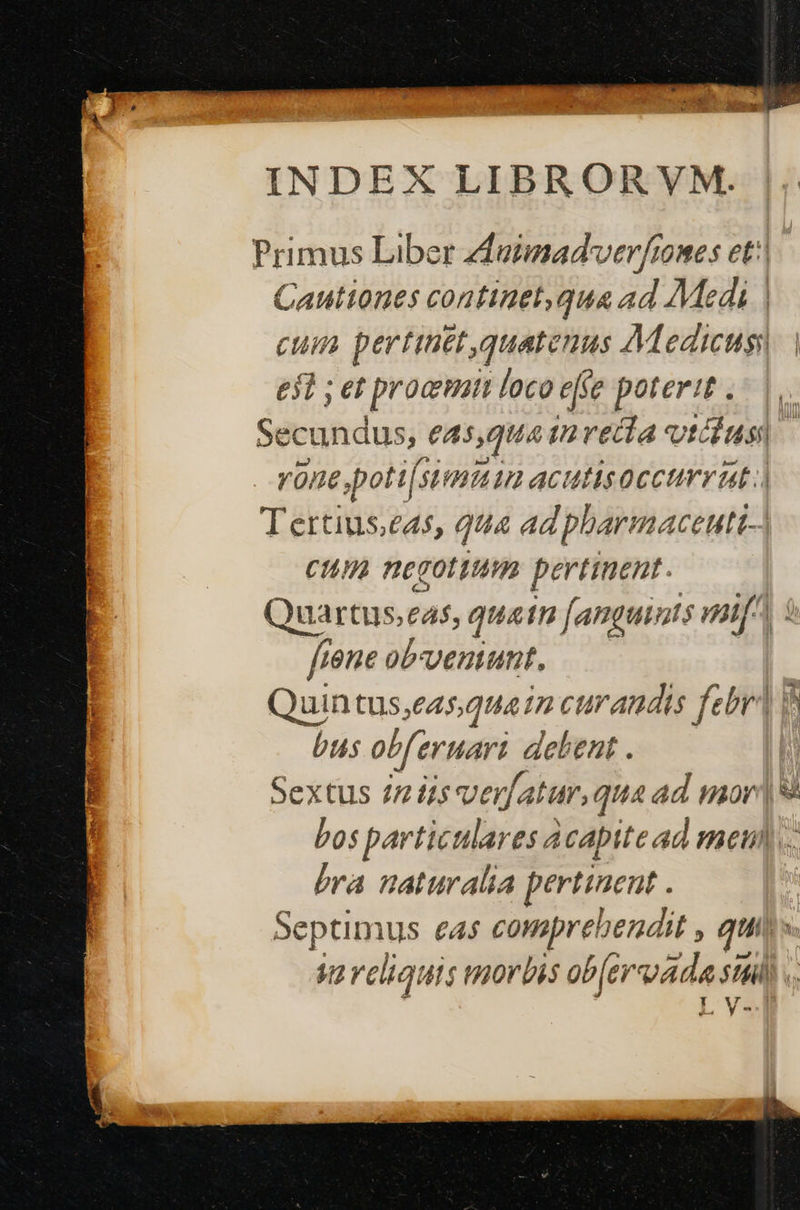 INDEX LIBRORVM.
Primus Liber Animaduersiones et
Cautiones continet, quæ ad Medi
cum pertinēt, quatenus Medicus
est; et proœmii loco esse poterit.
Secundus, eas, quæ in recta victus
rōne, potissimū in acutis occurrūt:
Tertius, eas, quæ ad pharmaceuti-
cum negotium pertinent.
Quartus, eas, quæ in sanguinis mis
sione obveniunt.
Quintus, eas, quæ in curandis febr
bus obseruari debent.
Sextus in iis versatur, quæ ad mor
bos particulares à capite ad mem
bra naturalia pertinent.
Septimus eas comprehendit, qu
in reliquis morbis obserVādæ sū
LV-